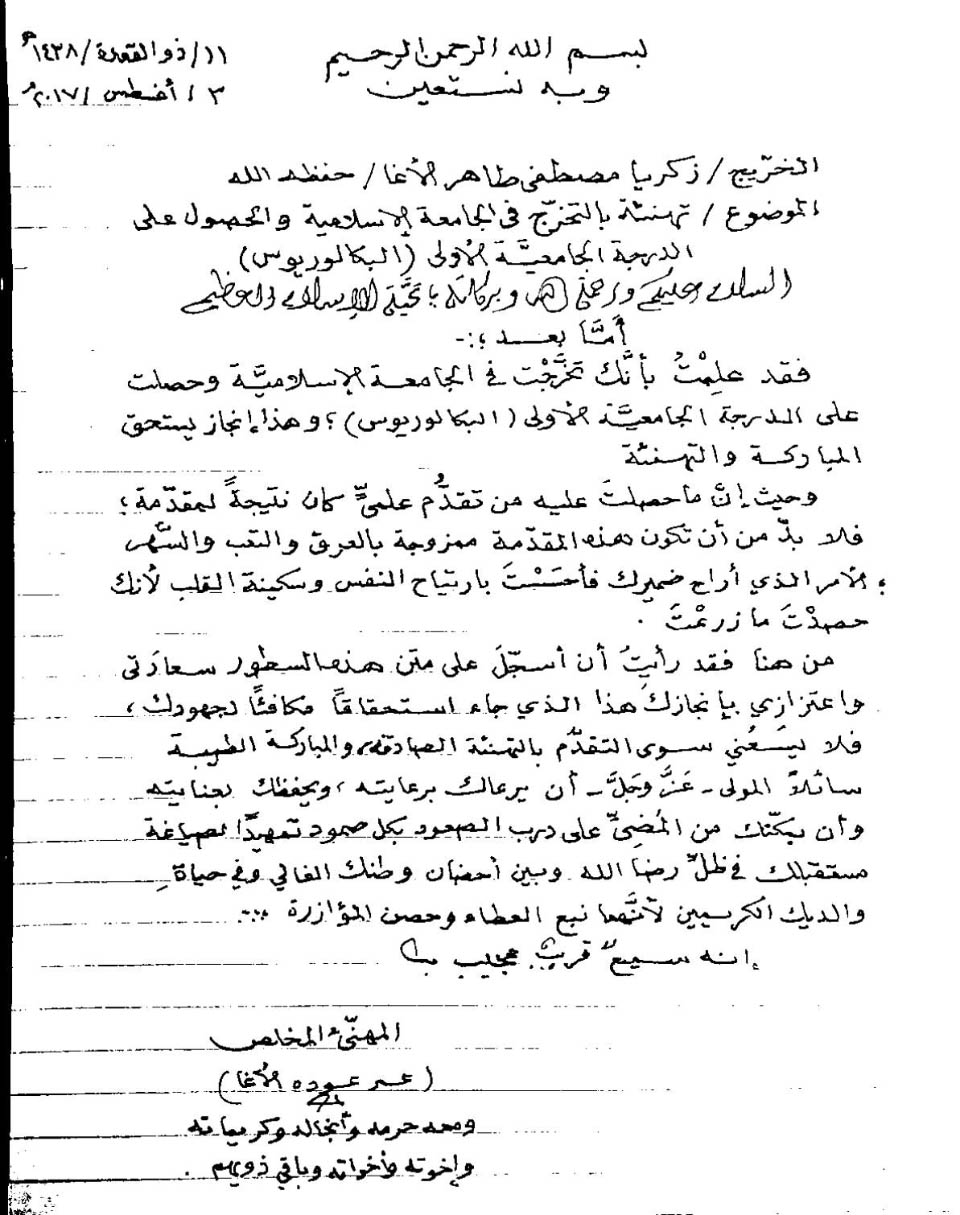 بسم الله الرحمن الرحيم
وبه نستعين
١١/ذو القعدة/١٤٣٨هـ
٣ / أغسطس /٢٠١٧م
الخرّيج / زكريا مصطفى طاهر الأغا / حفظه الله
الموضوع / تهنئة بالتخرّج في الجامعة الإسلامية والحصول على
الدرجة الجامعيَّة الأولى (البكالوريوس)
السلام عليكم ورحمة الله وبركاته بتحيَّة الإسلام العظيم
أمَّا بعــد ؛:-
فقد علِمْتُ بأنَّك تخرَّجْت في الجامعة الإسلاميَّة وحصلت
على الدرجة الجامعيَّة الأولى (البكالوريوس) ؛ وهذا إنجاز يستحق
المباركة والتهنئة
وحيث إنَّ ما حصلتَ عليه من تقدُّم علميٍّ كان نتيجةً لمقدّمة ؛
فلا بدّ من أن تكون هذه المقدّمة ممزوجة بالعرق والتعب والسَّهر
؛ الأمر الذي أراح ضميرك فأحسَسْتَ بارتياح النفس وسكينة القلب لأنك
حصدْتَ ما زرعْتَ .
من هنا فقد رأيتُ أن أسجّلَ على متن هذه السطور سعادَتي
واعتزازي بإنجازكَ هذا الذي جاء استحقاقاً مكافئًا لجهودك ،
فلا يسَعُني سوى التقدّم بالتهنئة الصادقة، والمباركة الطيبة
سائلاً المولى - عَزَّ وجَلَّ - أن يرعاك برعايته ، ويحفظك بعنايته
وأن يمكّنك من المُضيِّ على درب الصعود بكل صمود تمهيدًا لصياغة
مستقبلك في ظلّ رضا الله وبين أحضان وطنك الغالي وفي حياةِ
والديك الكريمين لأنَّهما نبع العطاء وحصن المؤازرة ...
إنه سميعٌ قريبٌ مجيب
المهنّئ المخلص
(عمر عوده الأغا)
ومعه حرمه وأنجاله وكريماته
وإخوته وأخواته وباقي ذويهم .